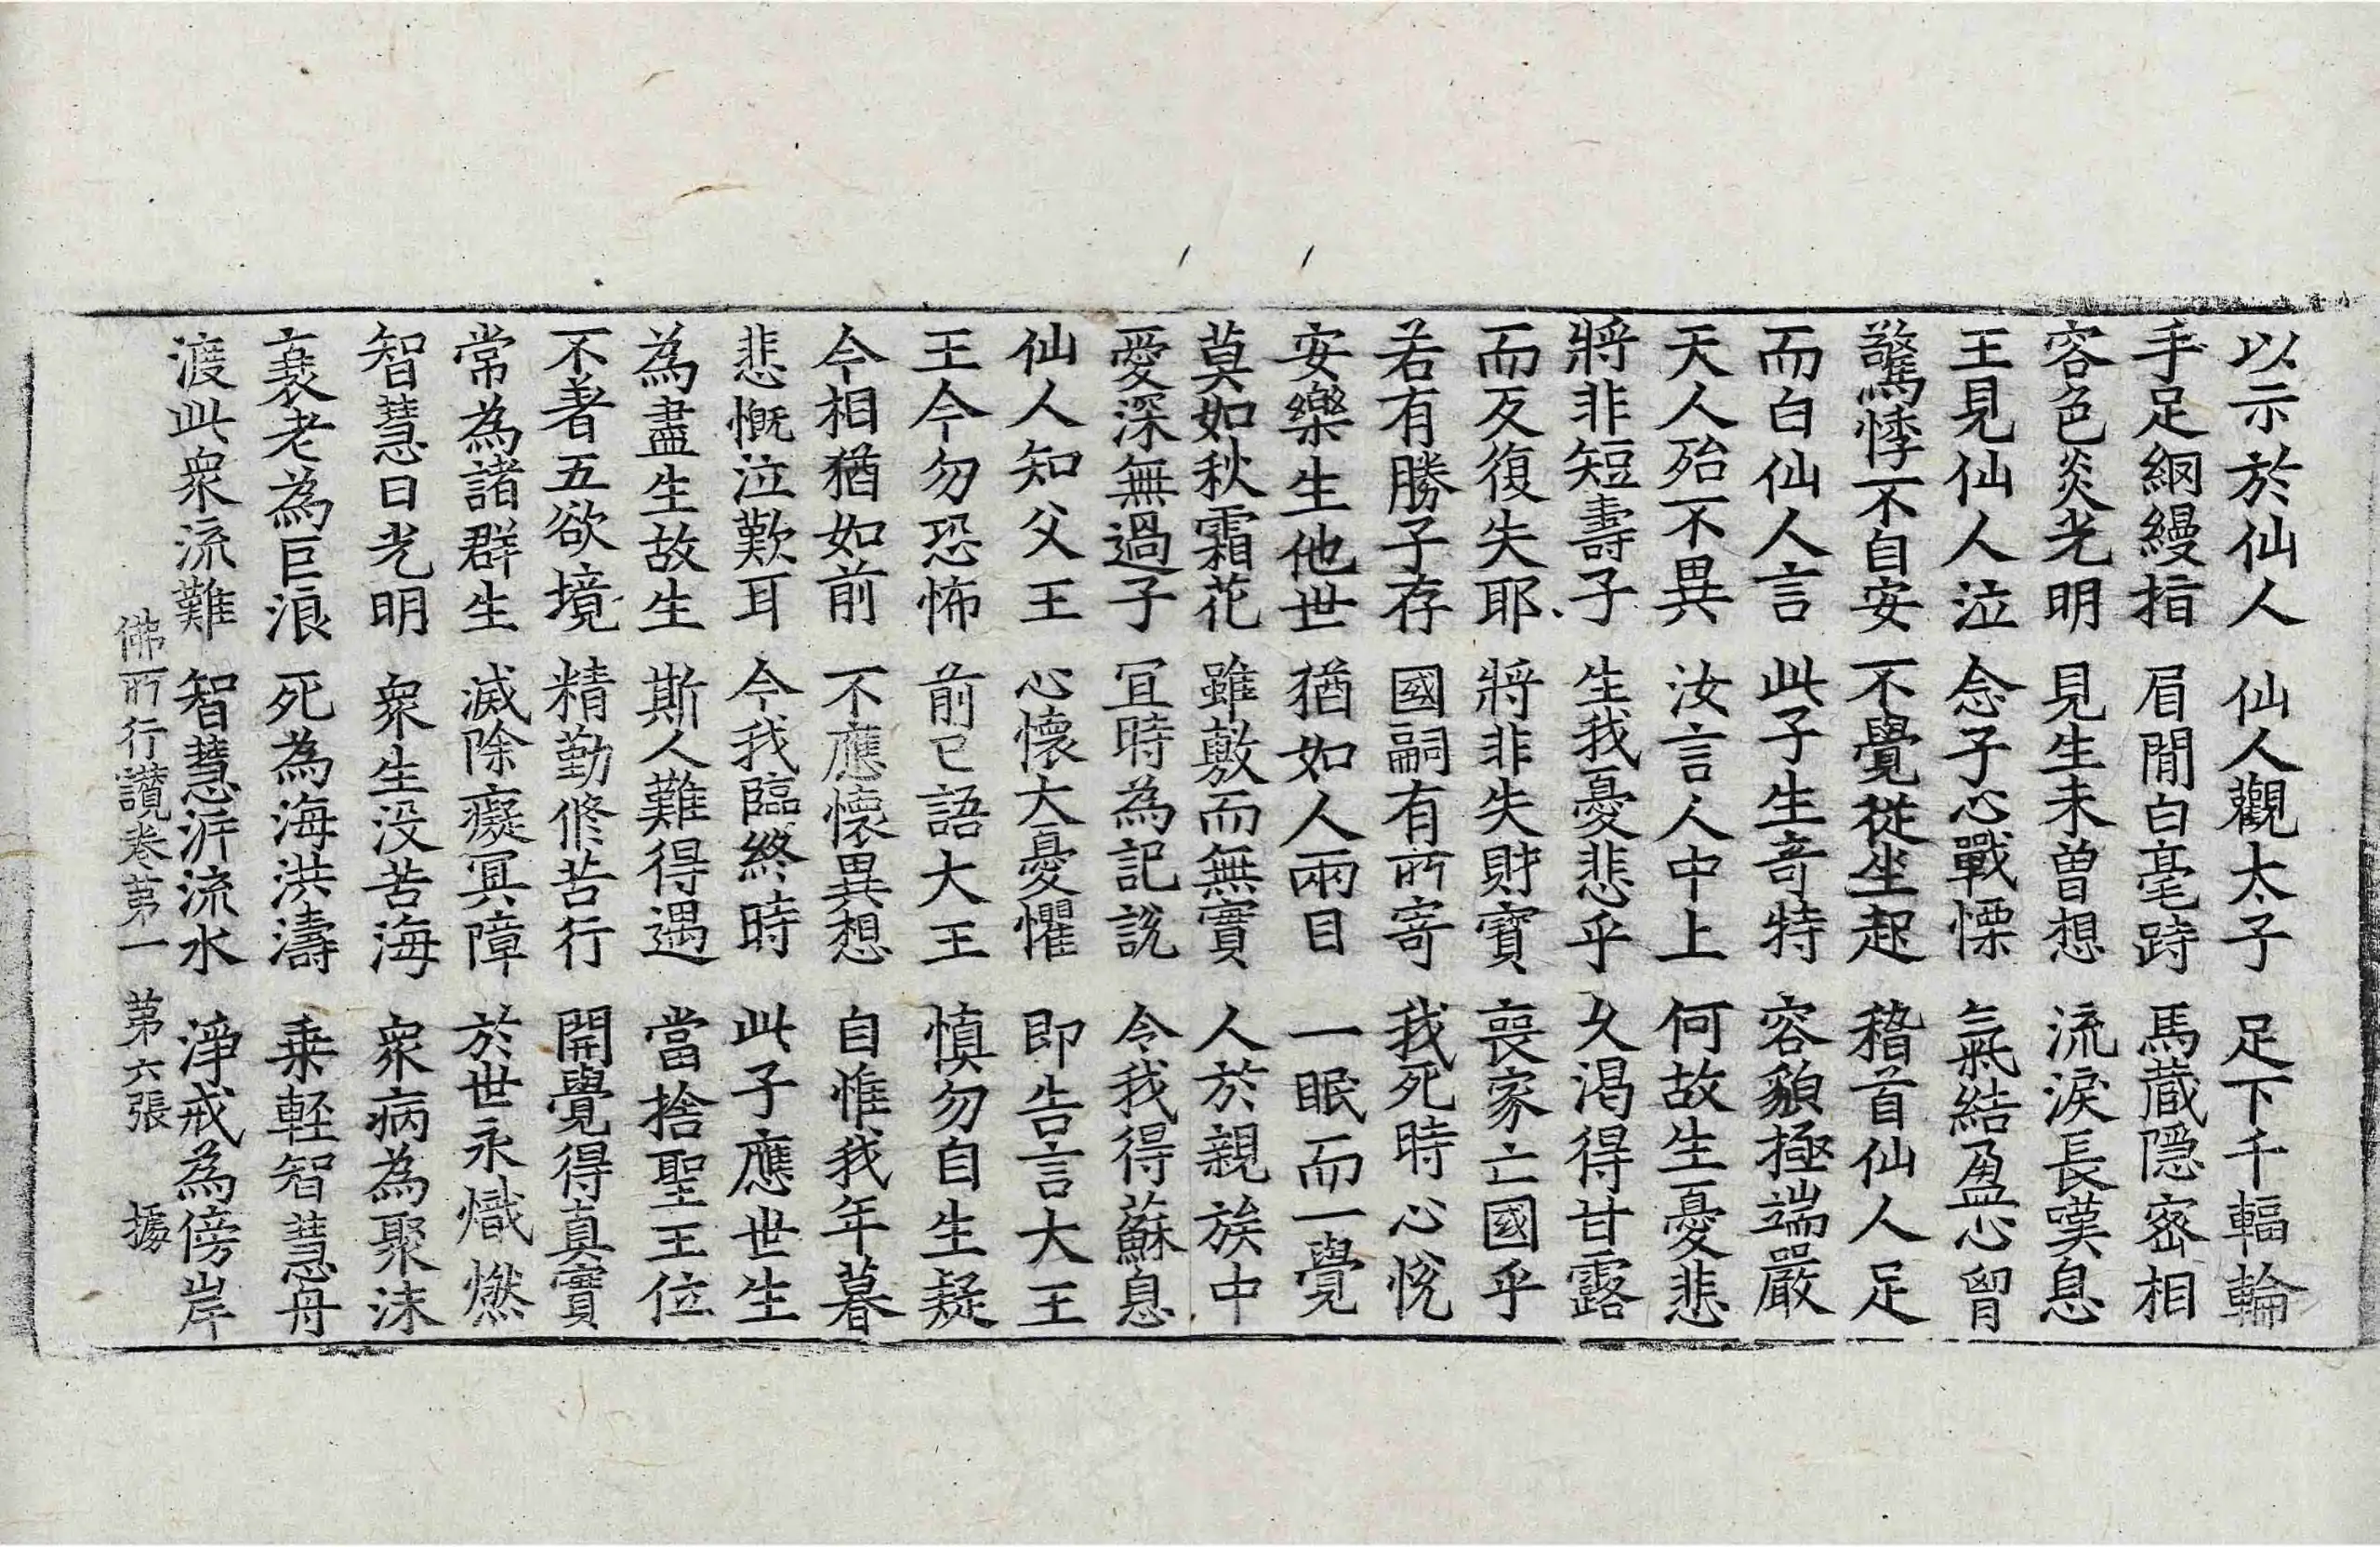 以示於仙人 仙人觀太子 足下千輻輪
手足網縵指 眉間白毫跱 馬藏隱密相
容色炎光明 見生未曾想 流淚長嘆息
王見仙人泣 念子心戰慄 氣結盈心胷
驚悸不自安 不覺從坐起 稽首仙人足
而白仙人言 此子生奇特 容貌極端嚴
天人殆不異 汝言人中上 何故生憂悲
將非短壽子 生我憂悲乎 久渴得甘露
而反復失耶 將非失財寶 喪家亡國乎
若有勝子存 國嗣有所寄 我死時心悅
安樂生他世 猶如人兩目 一眠而一覺
莫如秋霜花 雖敷而無實 人於親族中
愛深無過子 宜時為記說 令我得蘇息
仙人知父王 心懷大憂懼 即告言大王
王今勿恐怖 前已語大王 慎勿自生疑
今相猶如前 不應懷異想 自惟我年暮
悲慨泣歎耳 今我臨終時 此子應世生
為盡生故生 斯人難得遇 當捨聖王位
不著五欲境 精勤修苦行 開覺得真實
常為諸群生 滅除癡冥障 於世永熾燃
智慧日光明 衆生没苦海 衆病為聚沫
衰老為巨浪 死為海洪濤 乗輕智慧舟
渡此衆流難 智慧泝流水 淨戒為傍岸
佛所行讚卷第一 第六張 據